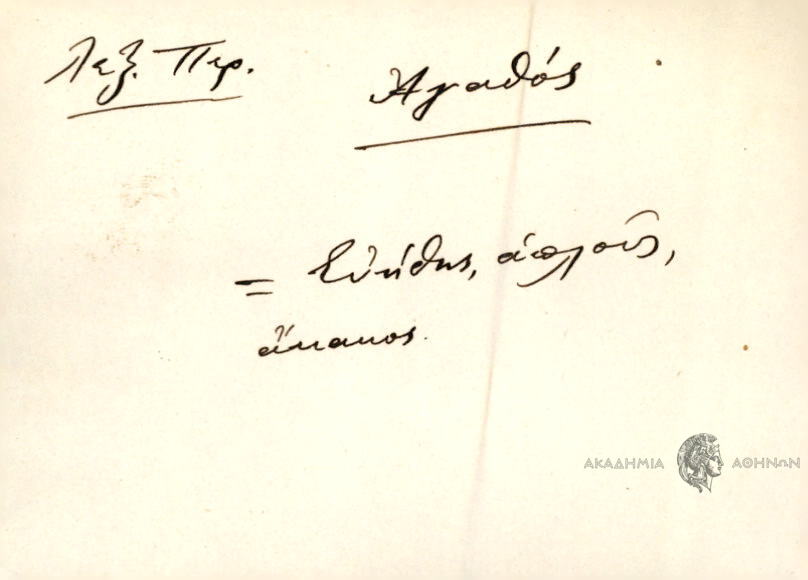 Λεξ. Περ.
Ἀγαθός
= Εὐήθης, ἁπλοῦς,
ἄκακος.
ΑΚΑΔΗΜΙΑ ΑΘΗΝΩΝ